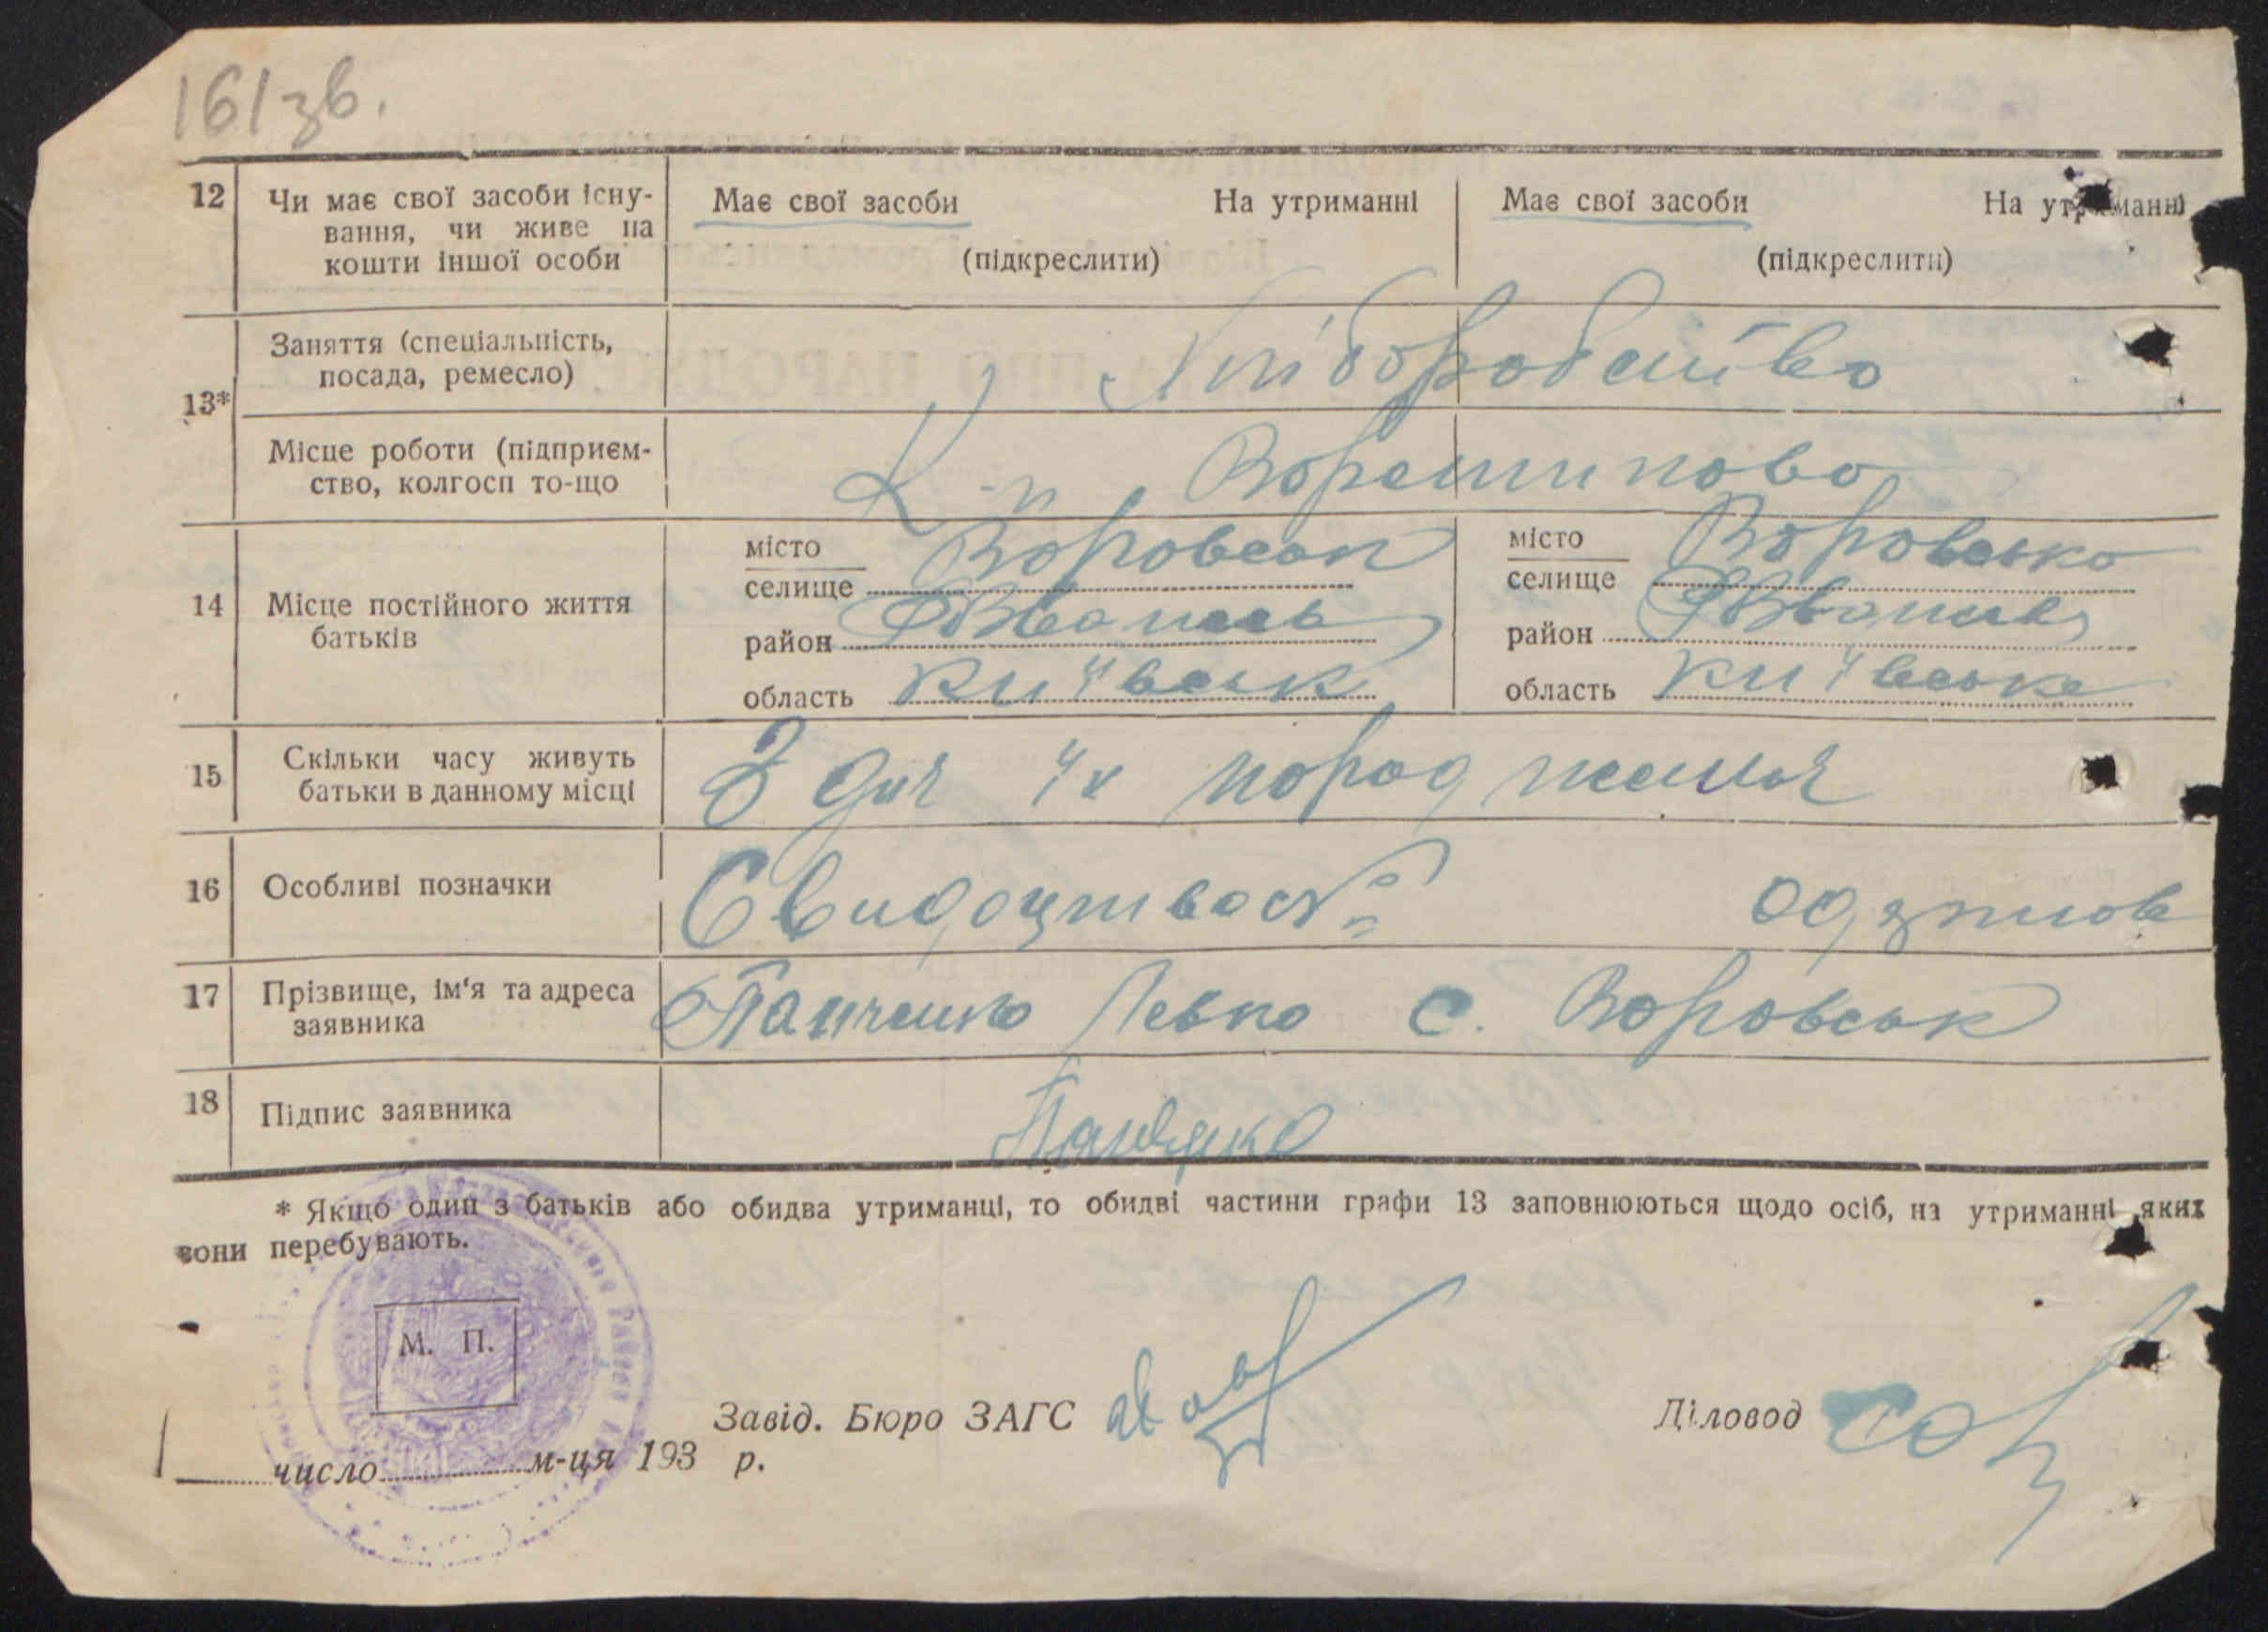 161 зв.
12 Чи має свої засоби існу-
вання, чи живе на
кошти іншої особи
Має свої засоби На утриманні
(підкреслити)
Має свої засоби На утриманні
(підкреслити)
13*
Заняття (спеціальність,
посада, ремесло)
Хліборобство
Місце роботи (підприєм-
ство, колгосп то-що
К-п Ворошилово
14 Місце постійного життя
батьків
місто
селище Воровськ
район
область Київськ
місто
селище Воровсько
район
область Київське
15 Скільки часу живуть
батьки в данному місці
З дня їх породження
16 Особливі позначки
17 Прізвище, ім'я та адреса
заявника
Панченко Левко с. Воровськ
18 Підпис заявника
Панченко
* Якщо один з батьків або обидва утриманці, то обидві частини графи 13 заповнюються щодо осіб, на утриманні яких
вони перебувають.
М. П.
Завід. Бюро ЗАГС
Діловод
число м-ця 193 р.